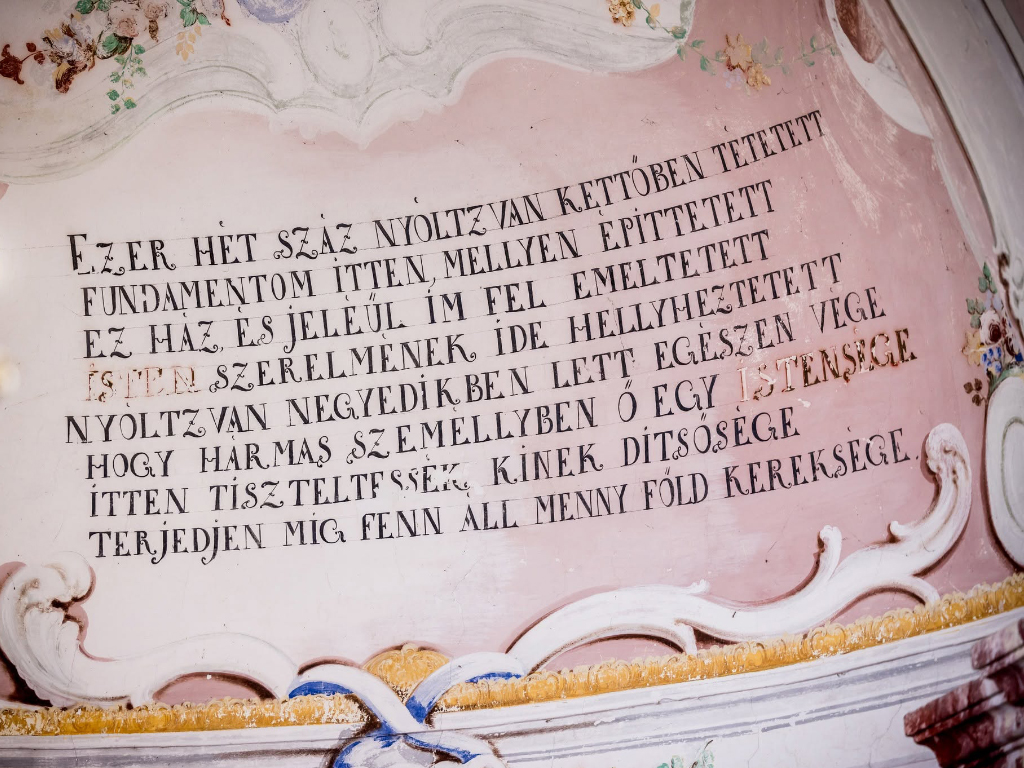 EZER HÉT SZÁZ NYÓLTZVAN KETTŐBEN TÉTETETT
FUNDAMENTOM ITTEN, MELLYEN ÉPÍTTETETT
EZ HÁZ, ÉS JELÉÜL ÍM FEL EMELTETETT
ISTEN SZERELMÉNEK IDE HELLYHEZTETETT
NYÓLTZVAN NEGYEDIKBEN LETT EGÉSZEN VÉGE
HOGY HÁRMAS SZEMÉLLYBEN Ő EGY ISTENSÉGE
ITTEN TISZTELTESSÉK, KINEK DÍTSŐSÉGE
TERJEDJEN MIG FENN ÁLL MENNY FÖLD KEREKSÉGE.